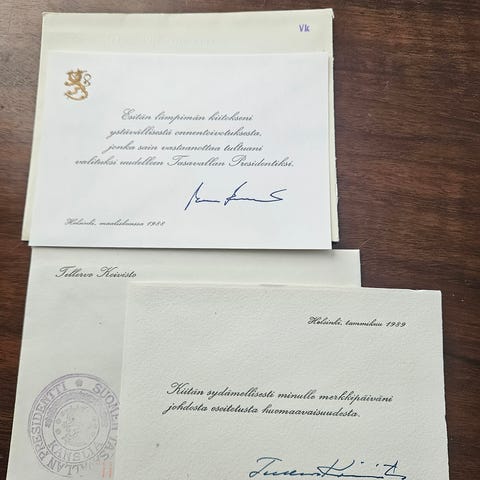 Vk
Esitän lämpimän kiitokseni
ystävällisestä onnentoivotuksesta,
jonka sain vastaanottaa tultuani
valituksi uudelleen Tasavallan Presidentiksi.
Helsinki, maaliskuussa 1988
Tellervo Koivisto
SUOMEN TAS
ALLAN PRESIDENTTI
KANSLI
Helsinki, tammikuu 1989
Kiitän sydämellisesti minulle merkkipäiväni
johdosta osoitetusta huomaavaisuudesta.